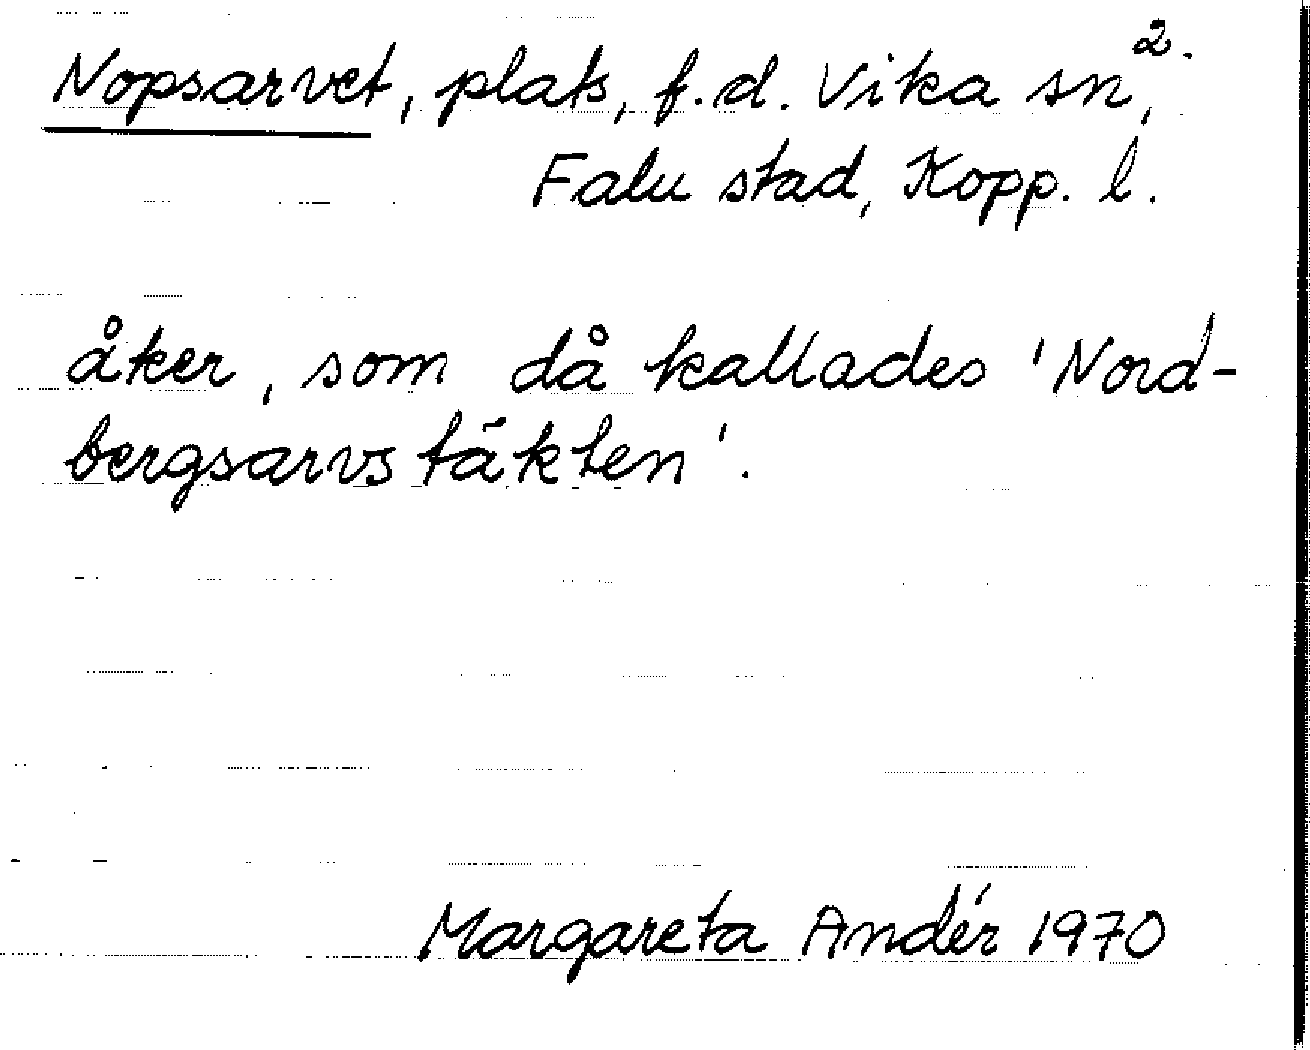 2.
Nopsarvet, plats, f.d. Vika sn,
Falu stad, Kopp. l.
åker, som då kallades 'Nord-
bergsarvstäkten'.
Margareta Andér 1970